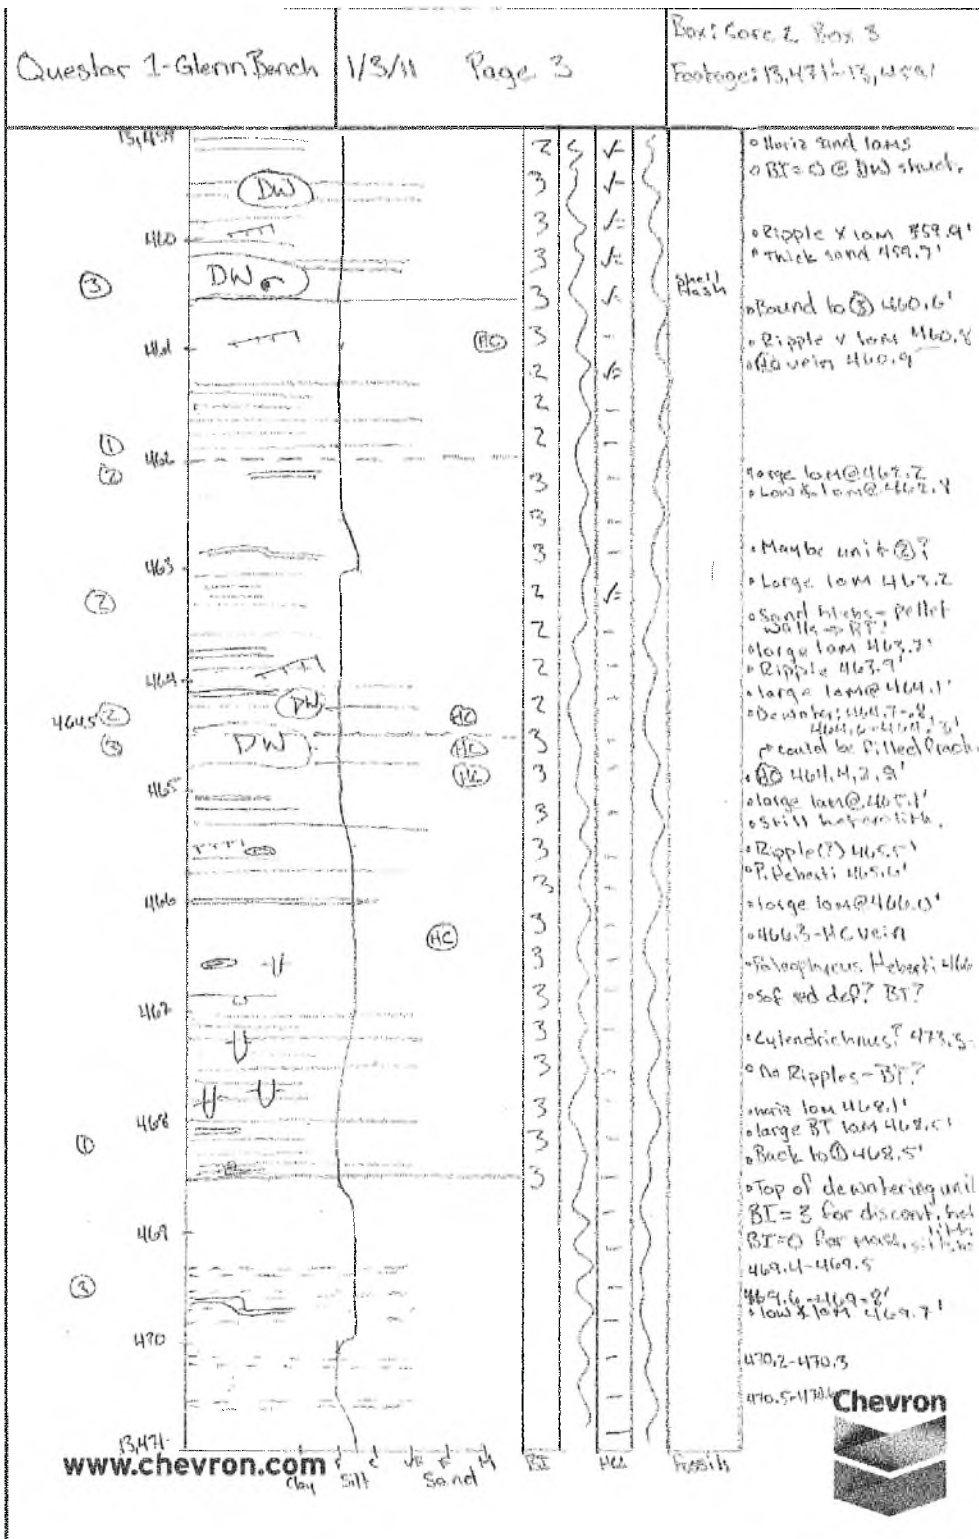 Questar 1-Glenn Bench
1/3/11 Page 3
Box: Core 2 Box 3
Footage: 13,471'-13,459'
13,459
460
461
462
463
464
464.5
465
466
467
468
469
470
13,471
③
①
②
②
②
③
①
③
DW
DW
DW
DW
HC
HC
HC
HC
HC
2
3
3
3
3
3
2
2
2
3
3
3
2
2
2
2
3
3
3
3
3
3
3
3
3
3
3
3
3
Shell
Hash
Horiz sand lams
BI=0 @ DW struct.
Ripple X lam 459.9'
Thick sand 459.7'
Bound to ③ 460.6'
Ripple X lam 460.8
HC vein 460.9
large lam@462.2
Low lam@462.4
Maybe unit ②?
Large lam 463.2
Sand blebs - pellet
walls → BT?
large lam 463.7'
Ripple 463.9'
large lam@464.1'
Dewater: 464.7-8,
could be filled frach.
HC 464.4,
large lam@465.1'
Still heterolith.
Ripple(?) 465.5'
P. Heberti 465.6'
large lam@466.0'
466.3-HC vein
Heberti 466
sed def? BT?
473.5
No Ripples - BT?
horiz lam 468.1'
large BT lam 468.5'
Back to ① 468.5'
Top of dewatering unit
BI=3 for discont. het
BI=0 for mass.
469.4-469.5
469.6-469.8'
low lam 469.7'
470.2-470.3
Chevron
www.chevron.com
Clay Silt Sand
F C VF F M
BI HCl Fossils